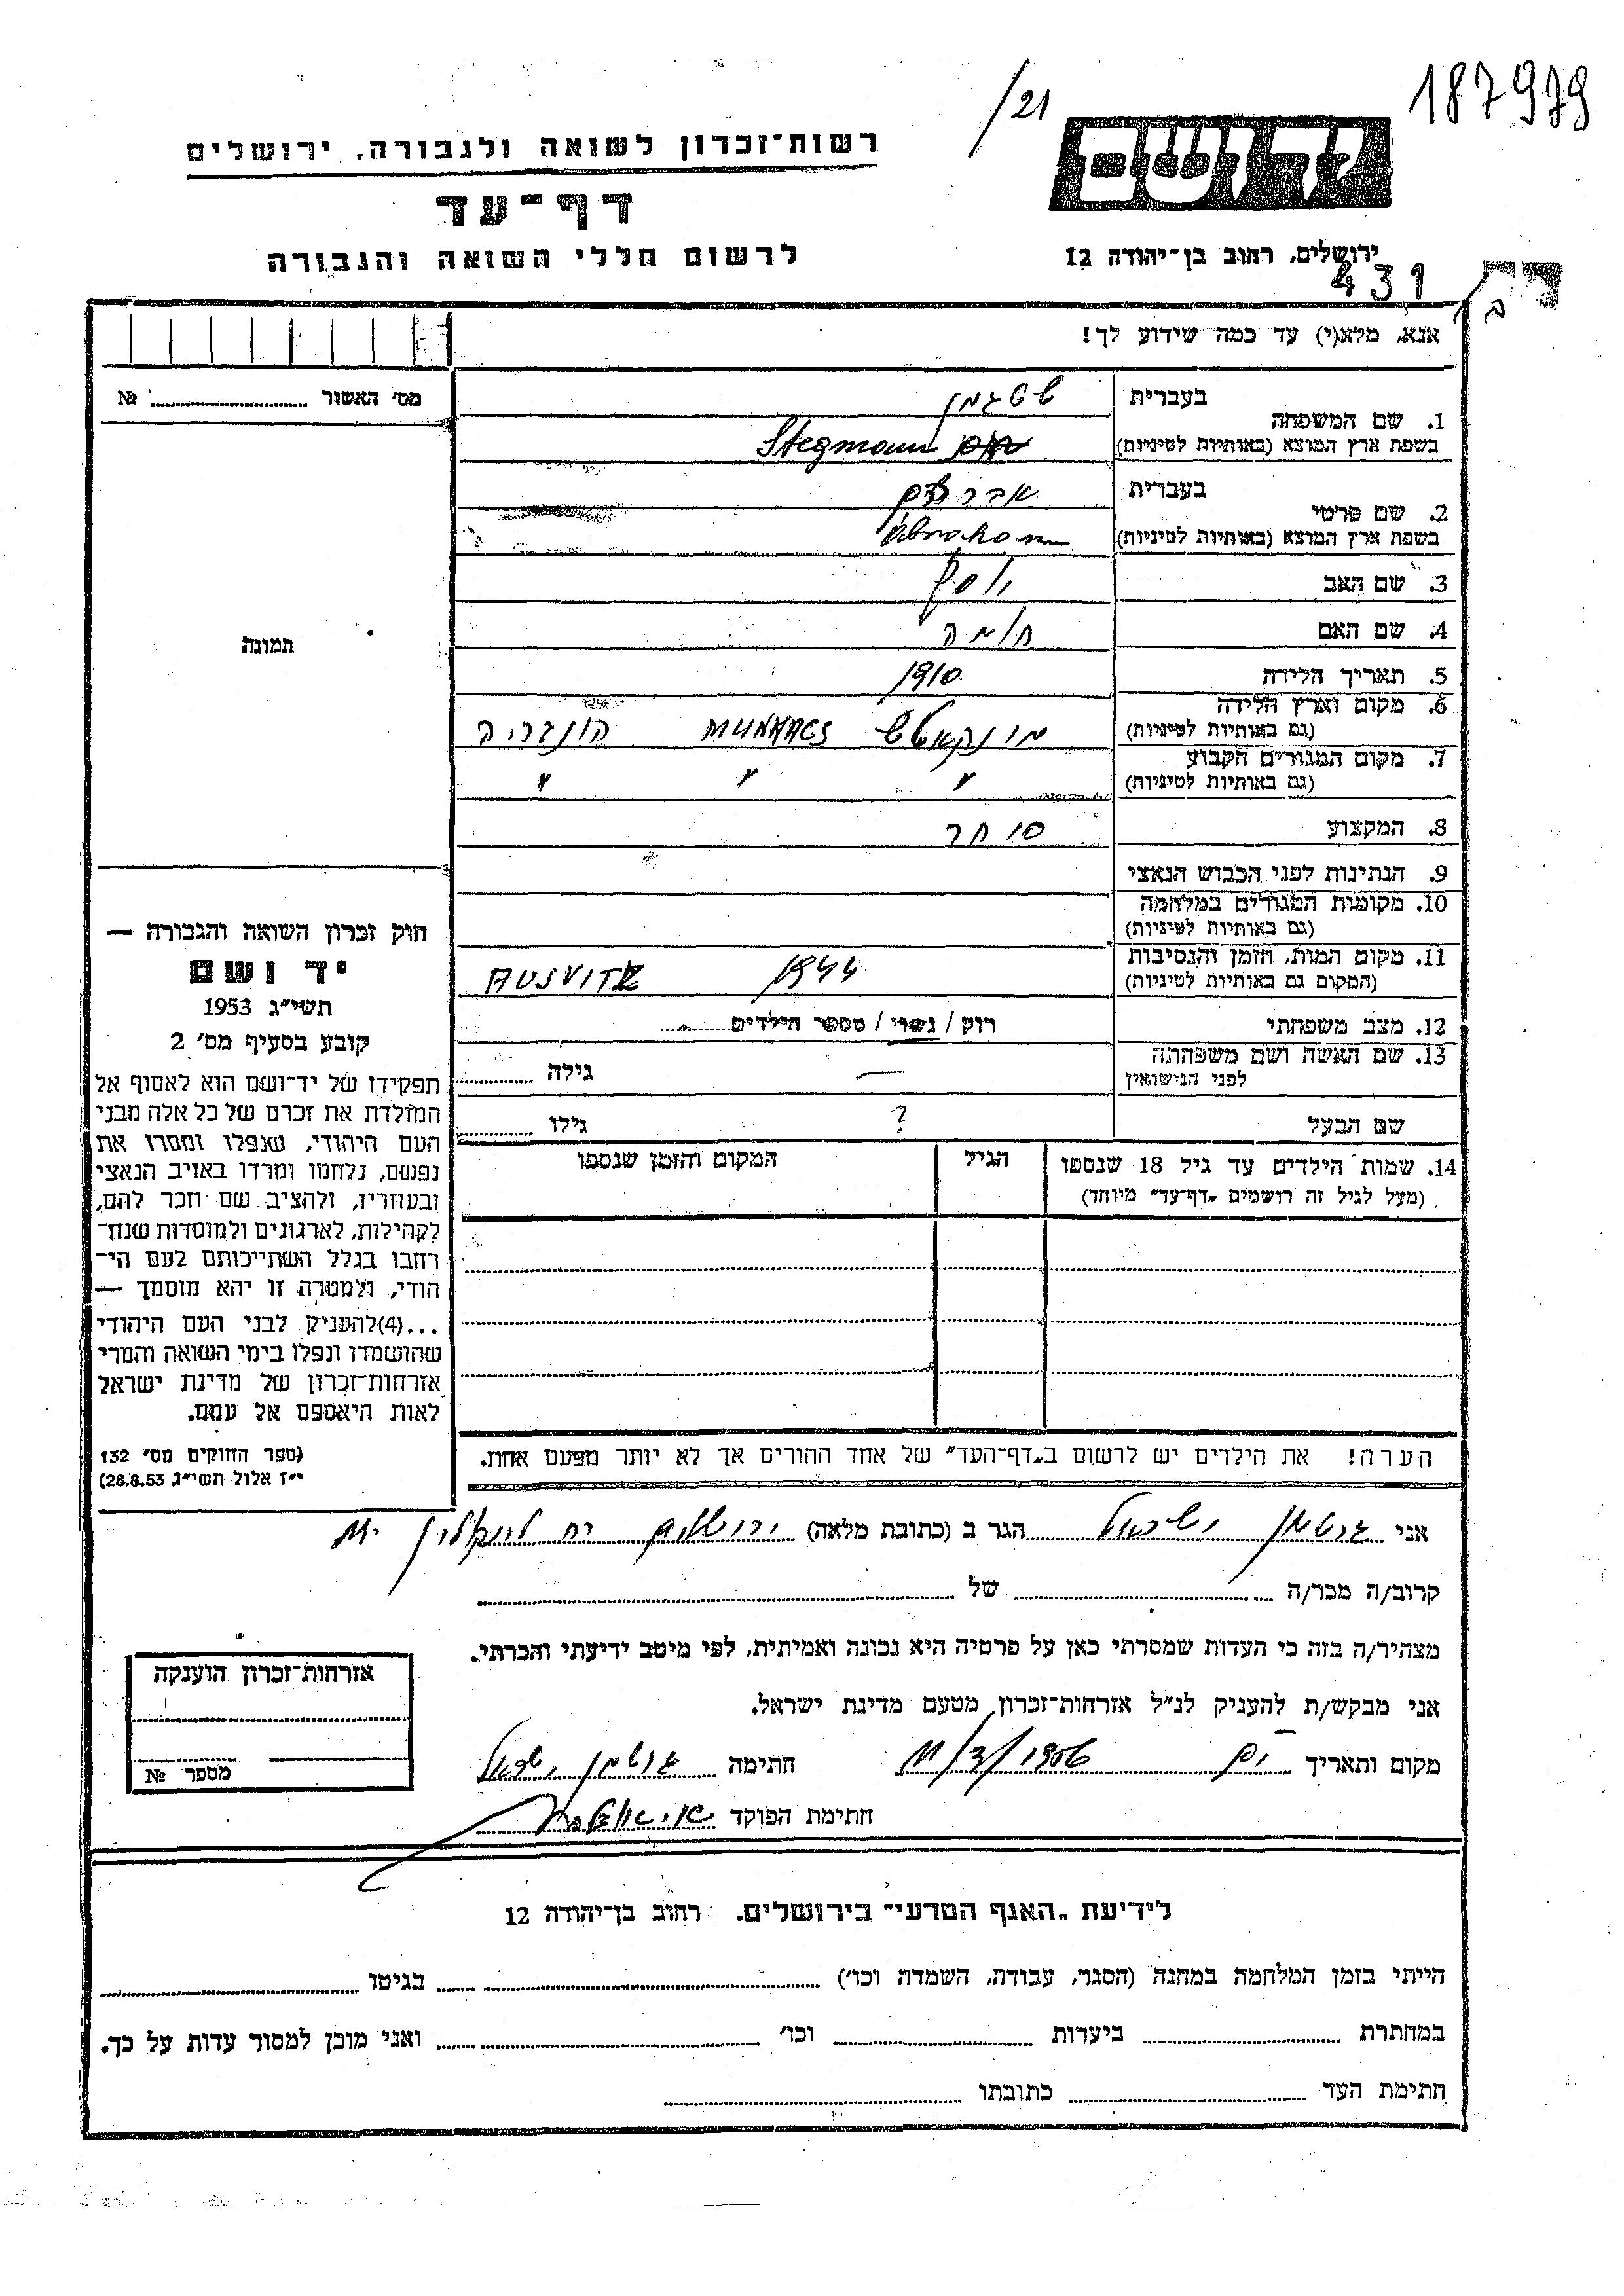 187979
/21
רשות־זכרון לשואה ולגבורה, ירושלים
ידושם
דף־עד
לרשום חללי השואה והגבורה
ירושלים, רחוב בן־יהודה 12
431
אנא, מלא(י) עד כמה שידוע לך!
מס׳ האשור № 
תמונה
1. שם המשפחה
בעברית שטגמן
בשפת ארץ המוצא (באותיות לטיניות) Stegmann
2. שם פרטי
בעברית אברהם
בשפת ארץ המוצא (באותיות לטיניות) Abraham
3. שם האב יוסף
4. שם האם
5. תאריך הלידה 1910
6. מקום וארץ הלידה
(גם באותיות לטיניות) מונקאטש MUNKACS הונגריה
7. מקום המגורים הקבוע
(גם באותיות לטיניות) " " "
8. המקצוע סוחר
9. הנתינות לפני הכבוש הנאצי
10. מקומות המגורים במלחמה
(גם באותיות לטיניות)
11. מקום המות, הזמן והנסיבות
(המקום גם באותיות לטיניות) 1944 AUSVITZ
12. מצב משפחתי רוק / נשוי / מספר הילדים
13. שם האשה ושם משפחתה
לפני הנישואין — גילה
שם הבעל ? גילו
14. שמות הילדים עד גיל 18 שנספו
(מעל לגיל זה רושמים „דף־עד״ מיוחד)
הגיל
המקום והזמן שנספו
הערה! את הילדים יש לרשום ב„דף־העד״ של אחד ההורים אך לא יותר מפעם אחת.
חוק זכרון השואה והגבורה —
יד ושם
תשי״ג 1953
קובע בסעיף מס׳ 2
תפקידו של יד־ושם הוא לאסוף אל
המולדת את זכרם של כל אלה מבני
העם היהודי, שנפלו ומסרו את
נפשם, נלחמו ומרדו באויב הנאצי
ובעוזריו, ולהציב שם וזכר להם,
לקהילות, לארגונים ולמוסדות שנח־
רחבו בגלל השתייכותם לעם הי־
הודי, ולמטרה זו יהא מוסמך —
...(4)להעניק לבני העם היהודי
שהושמדו ונפלו בימי השואה והמרי
אזרחות־זכרון של מדינת ישראל
לאות היאספם אל עמם.
(ספר החוקים מס׳ 132
י״ז אלול תשי״ג, 28.8.53)
אני הגר ב (כתובת מלאה) ירושלים
קרוב/ה מכר/ה של
מצהיר/ה בזה כי העדות שמסרתי כאן על פרטיה היא נכונה ואמיתית, לפי מיטב ידיעתי והכרתי.
אני מבקש/ת להעניק לנ״ל אזרחות־זכרון, מטעם מדינת ישראל.
מקום ותאריך חתימה
חתימת הפוקד
אזרחות־זכרון הוענקה
מספר №
לידיעת „האגף המדעי״ בירושלים. רחוב בן־יהודה 12
הייתי בזמן המלחמה במחנה (הסגר, עבודה, השמדה וכו׳) בגיטו
במחתרת ביערות וכו׳ ואני מוכן למסור עדות על כך.
חתימת העד כתובתו